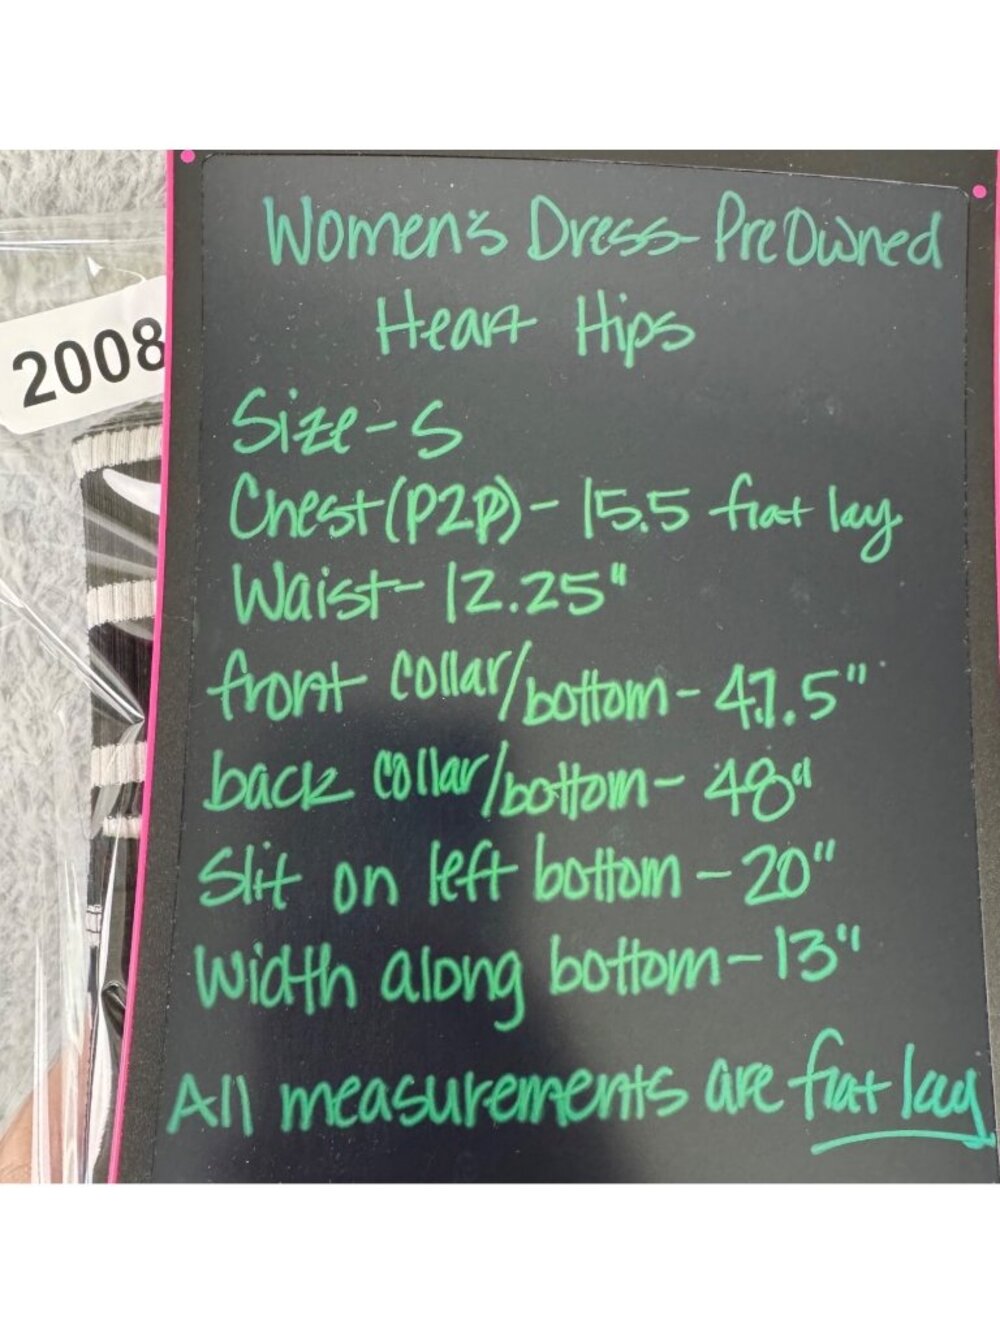 Women's Dress- PreOwned
Heart Hips
2008
Size - S
Chest (P2P) - 15.5 flat lay
Waist - 12.25"
front collar/bottom - 47.5"
back collar/bottom - 48"
Slit on left bottom - 20"
Width along bottom - 13"
All measurements are flat lay